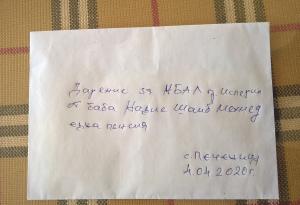 Дарение за МБАЛ гр Исперих
от баба Назие Шаиб Мехмед
една пенсия
с. Печеница
4.04 2020г.